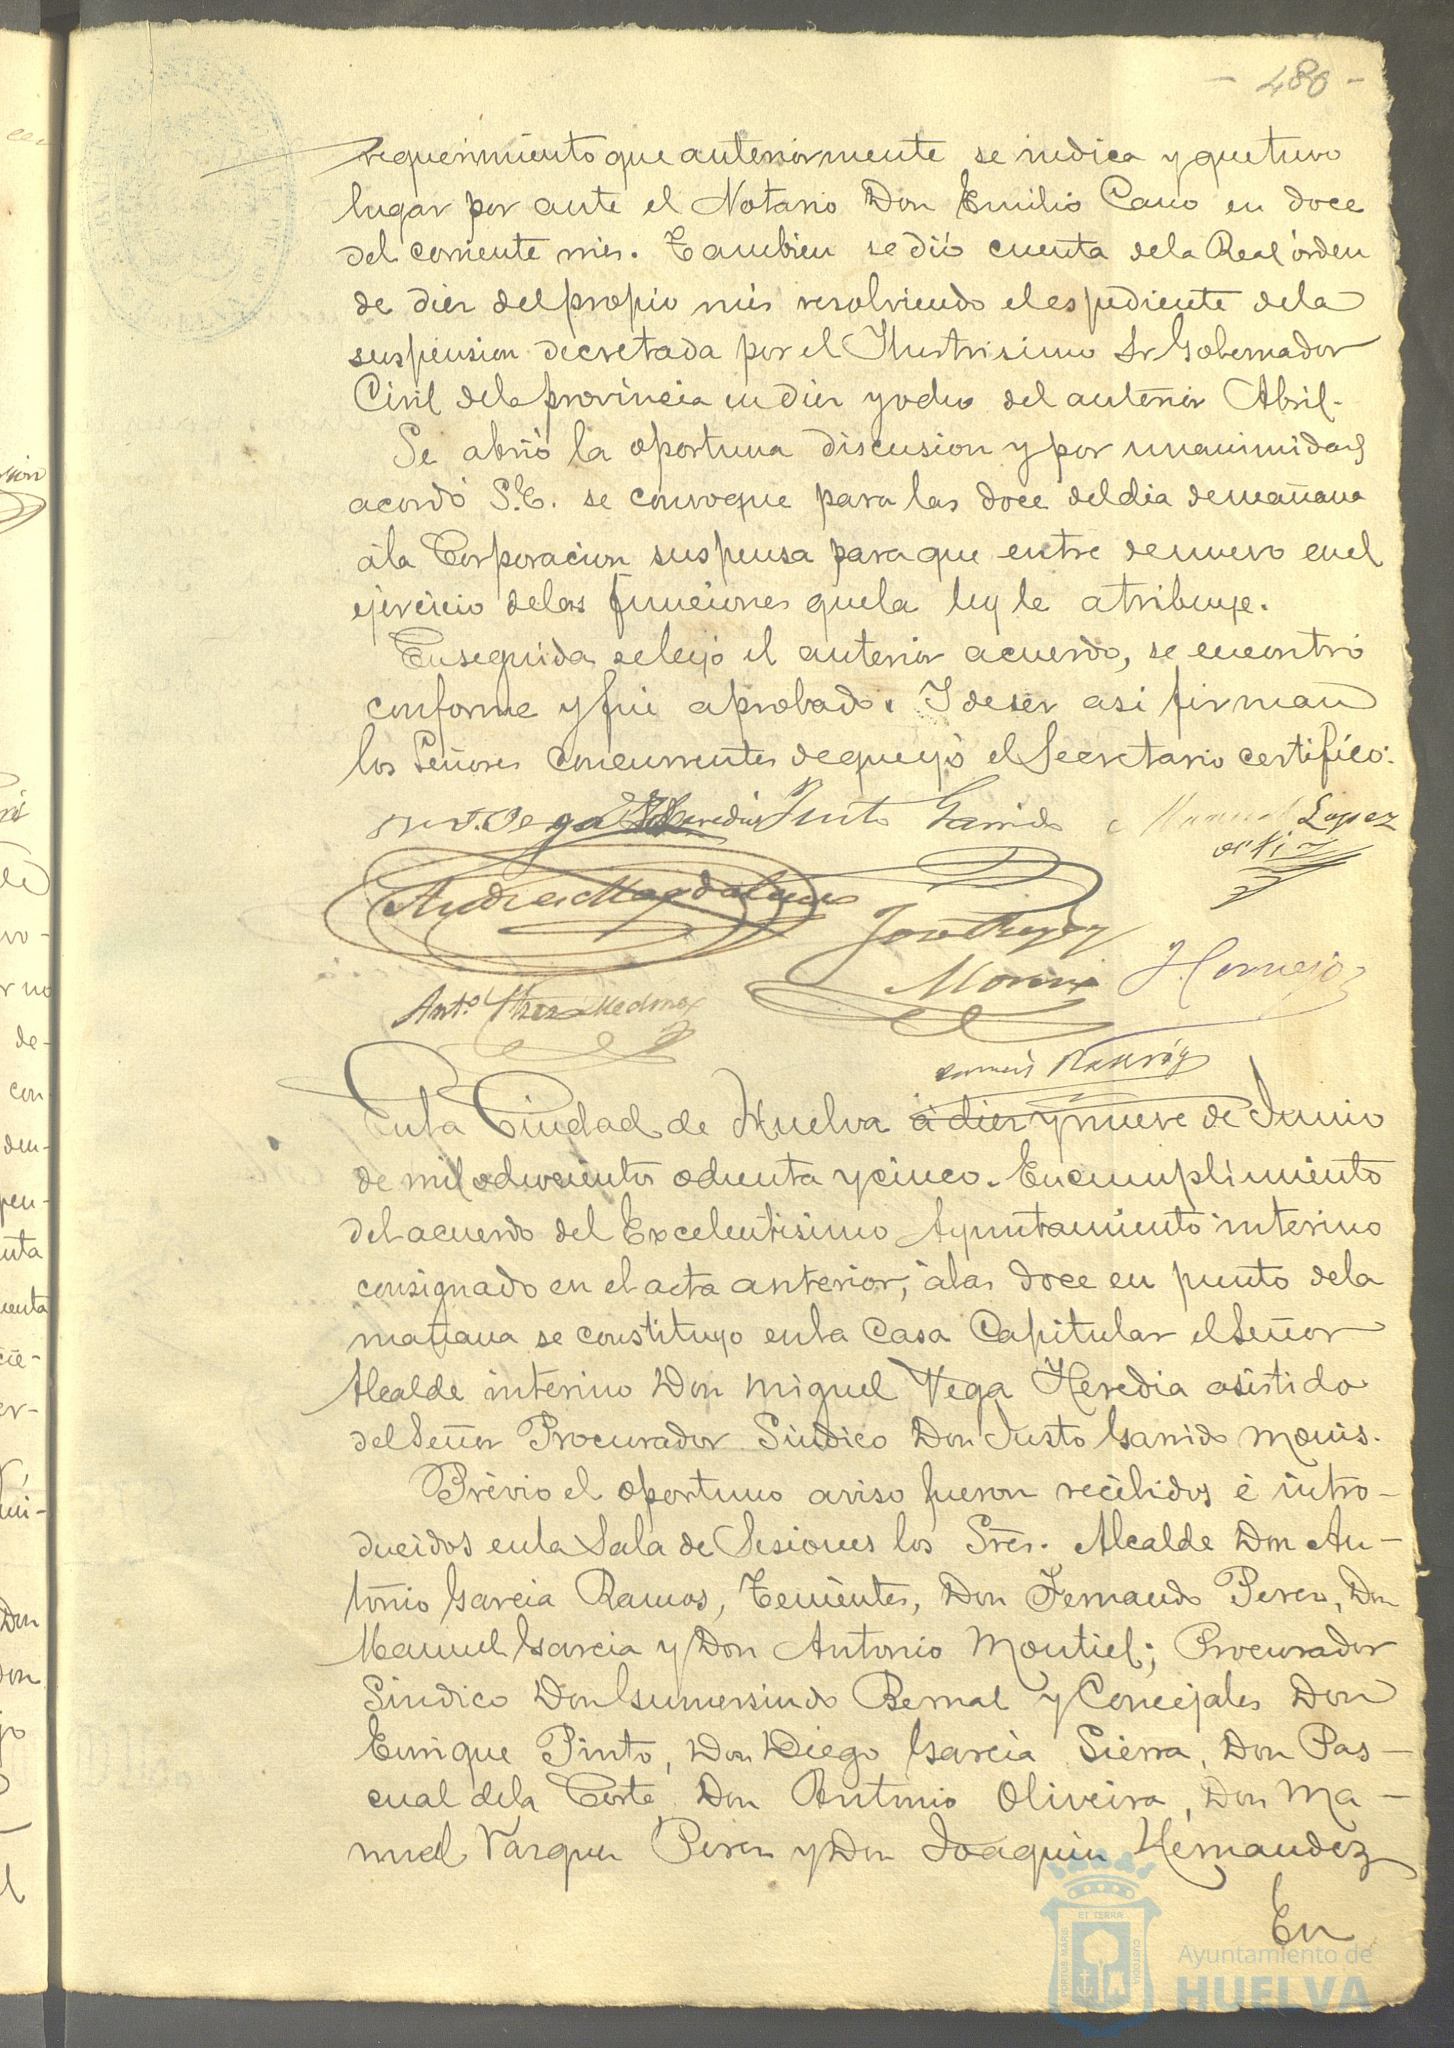 - 480 -
requerimiento que anteriormente se indica y que tuvo
lugar por ante el Notario Don Emilio Cano en doce
del corriente mes. Tambien se dió cuenta de la Real órden
de diez del propio mes resolviendo el espediente de la
suspension decretada por el Ilustrisimo Sr Gobernador
Civil de la provincia en diez y ocho del anterior Abril.
Se abrió la oportuna discusion y por unanimidad
acordó S.E. se convoque para las doce del dia de mañana
á la Corporacion suspensa para que entre de nuevo en el
ejercicio de las funciones que la ley le atribuye.
Enseguida se leyó el anterior acuerdo, se encontró
conforme y fué aprobado. I de ser asi firman
los Señores concurrentes de que yó el Secretario certifico.
Vega Heredia Justo Garrido Manuel Lopez
Andres Magdaleno
Jose
Moreno J. Cornejo
Anto Medina
En la Ciudad de Huelva á diez y nueve de Junio
de mil ochocientos ochenta y cinco. En cumplimiento
del acuerdo del Excelentisimo Ayuntamiento interino
consignado en el acta anterior, á las doce en punto de la
mañana se constituyo en la Casa Capitular el Señor
Alcalde interino Don Miguel Vega Heredia asistido
del Señor Procurador Sindico Don Justo Garrido Monis.
Prévio el oportuno aviso fueron recibidos é intro-
ducidos en la Sala de Sesiones los Sres. Alcalde Don An-
tonio Garcia Ramos, Tenientes, Don Fernando Perez, Don
Manuel Garcia y Don Antonio Montiel; Procurador
Sindico Don Gumersindo Bernal y Concejales Don
Enrique Pinto, Don Diego Garcia Sierra, Don Pas-
cual de la Corte, Don Antonio Oliveira, Don Ma-
nuel Vazquez Perez y Don Joaquin Hernandez
En
PORTUS MARIS ET TERRÆ CUSTODIA
Ayuntamiento de
HUELVA